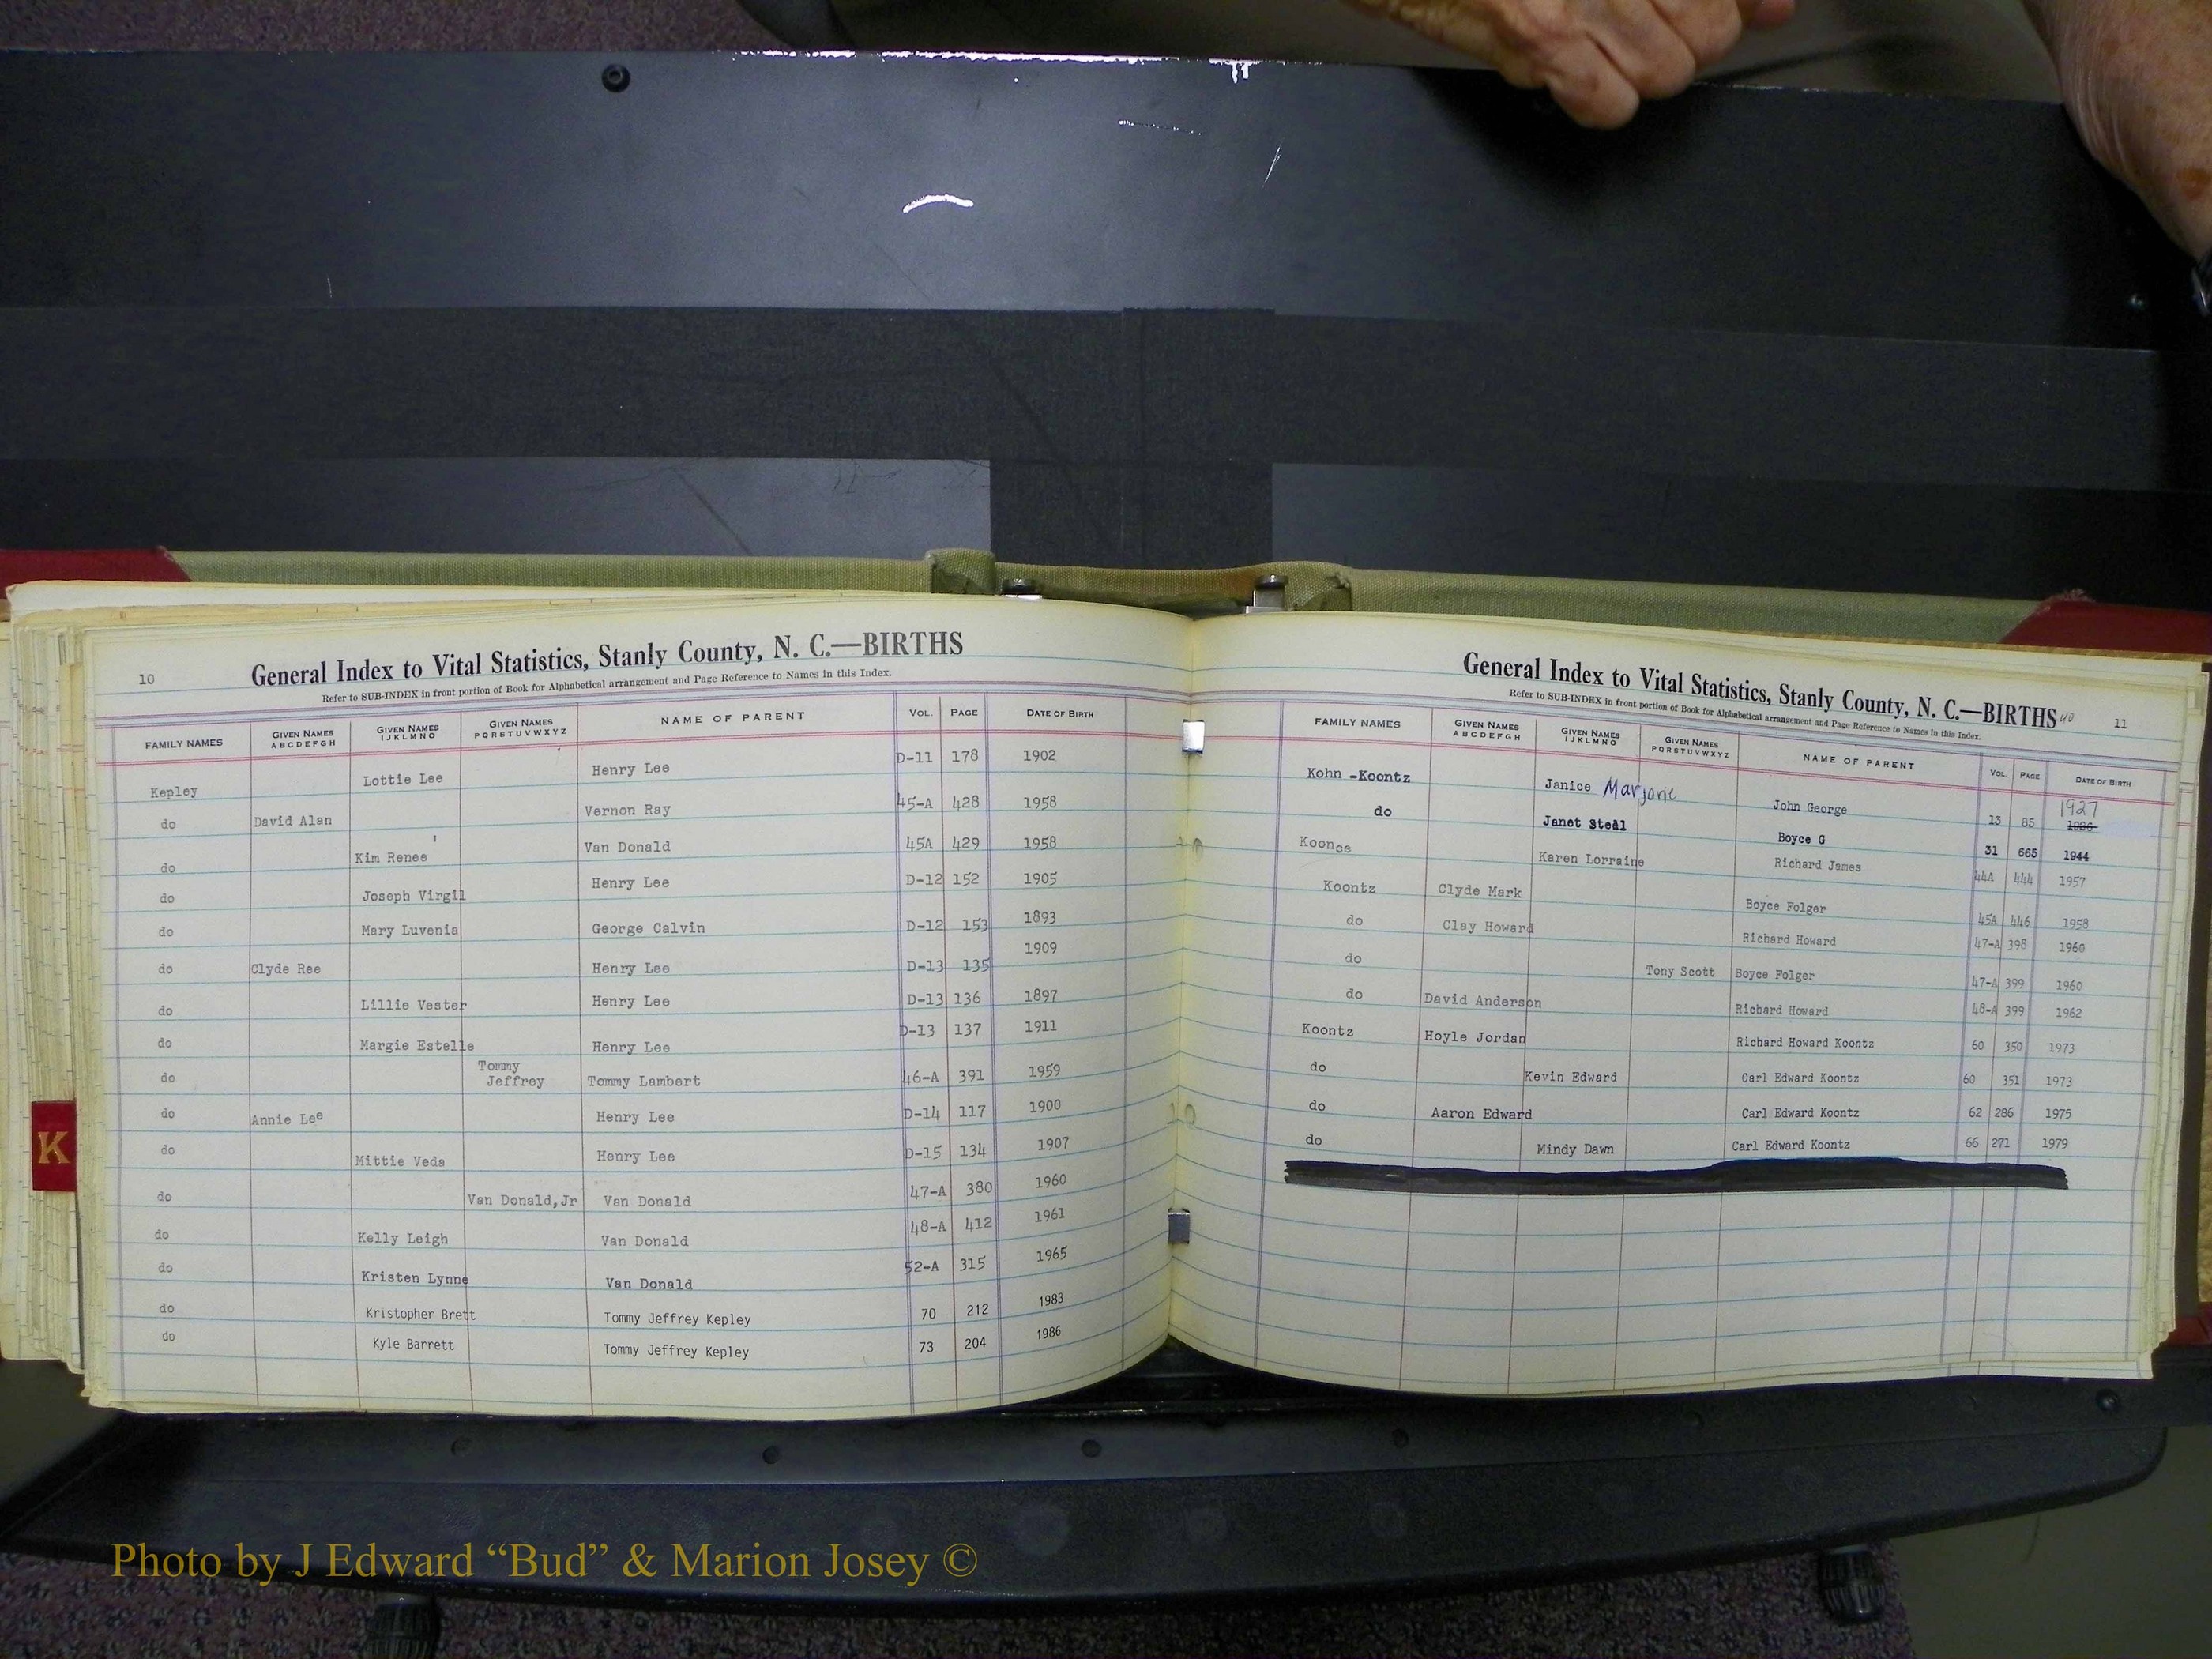 10
General Index to Vital Statistics, Stanly County, N. C.—BIRTHS
Refer to SUB-INDEX in front portion of Book for Alphabetical arrangement and Page Reference to Names in this Index.
FAMILY NAMES GIVEN NAMES ABCDEFGH GIVEN NAMES IJKLMNO GIVEN NAMES PQRSTUVWXYZ NAME OF PARENT VOL. PAGE DATE OF BIRTH
Kepley Lottie Lee Henry Lee D-11 178 1902
do David Alan Vernon Ray 45-A 428 1958
do Kim Renee Van Donald 45A 429 1958
do Joseph Virgil Henry Lee D-12 152 1905
do Mary Luvenia George Calvin D-12 153 1893
do Clyde Ree Henry Lee D-13 135 1909
do Lillie Vester Henry Lee D-13 136 1897
do Margie Estelle Henry Lee D-13 137 1911
do Tommy Jeffrey Tommy Lambert 46-A 391 1959
do Annie Lee Henry Lee D-14 117 1900
do Mittie Veda Henry Lee D-15 134 1907
do Van Donald,Jr Van Donald 47-A 380 1960
do Kelly Leigh Van Donald 48-A 412 1961
do Kristen Lynne Van Donald 52-A 315 1965
do Kristopher Brett Tommy Jeffrey Kepley 70 212 1983
do Kyle Barrett Tommy Jeffrey Kepley 73 204 1986
K
General Index to Vital Statistics, Stanly County, N. C.—BIRTHS 40 11
Refer to SUB-INDEX in front portion of Book for Alphabetical arrangement and Page Reference to Names in this Index.
FAMILY NAMES GIVEN NAMES ABCDEFGH GIVEN NAMES IJKLMNO GIVEN NAMES PQRSTUVWXYZ NAME OF PARENT VOL. PAGE DATE OF BIRTH
Kohn -Koontz Janice Marjorie John George 13 85 1927
do Janet Steal Boyce G 31 665 1944
Koonce Karen Lorraine Richard James 44A 444 1957
Koontz Clyde Mark Boyce Folger 45A 446 1958
do Clay Howard Richard Howard 47-A 398 1960
do Tony Scott Boyce Folger 47-A 399 1960
do David Anderson Richard Howard 48-A 399 1962
Koontz Hoyle Jordan Richard Howard Koontz 60 350 1973
do Kevin Edward Carl Edward Koontz 60 351 1973
do Aaron Edward Carl Edward Koontz 62 286 1975
do Mindy Dawn Carl Edward Koontz 66 271 1979
Photo by J Edward “Bud” & Marion Josey ©